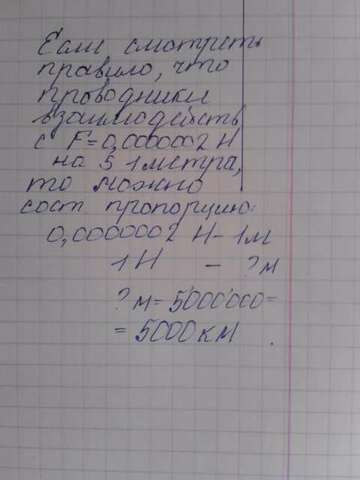 Если смотреть
правило, что
проводники
взаимодейств
с F=0,0000002 Н
на S 1 метра,
то можно
сост пропорцию:
0,0000002 Н - 1м
1Н - ? м
? м = 5000000 =
= 5000 км.